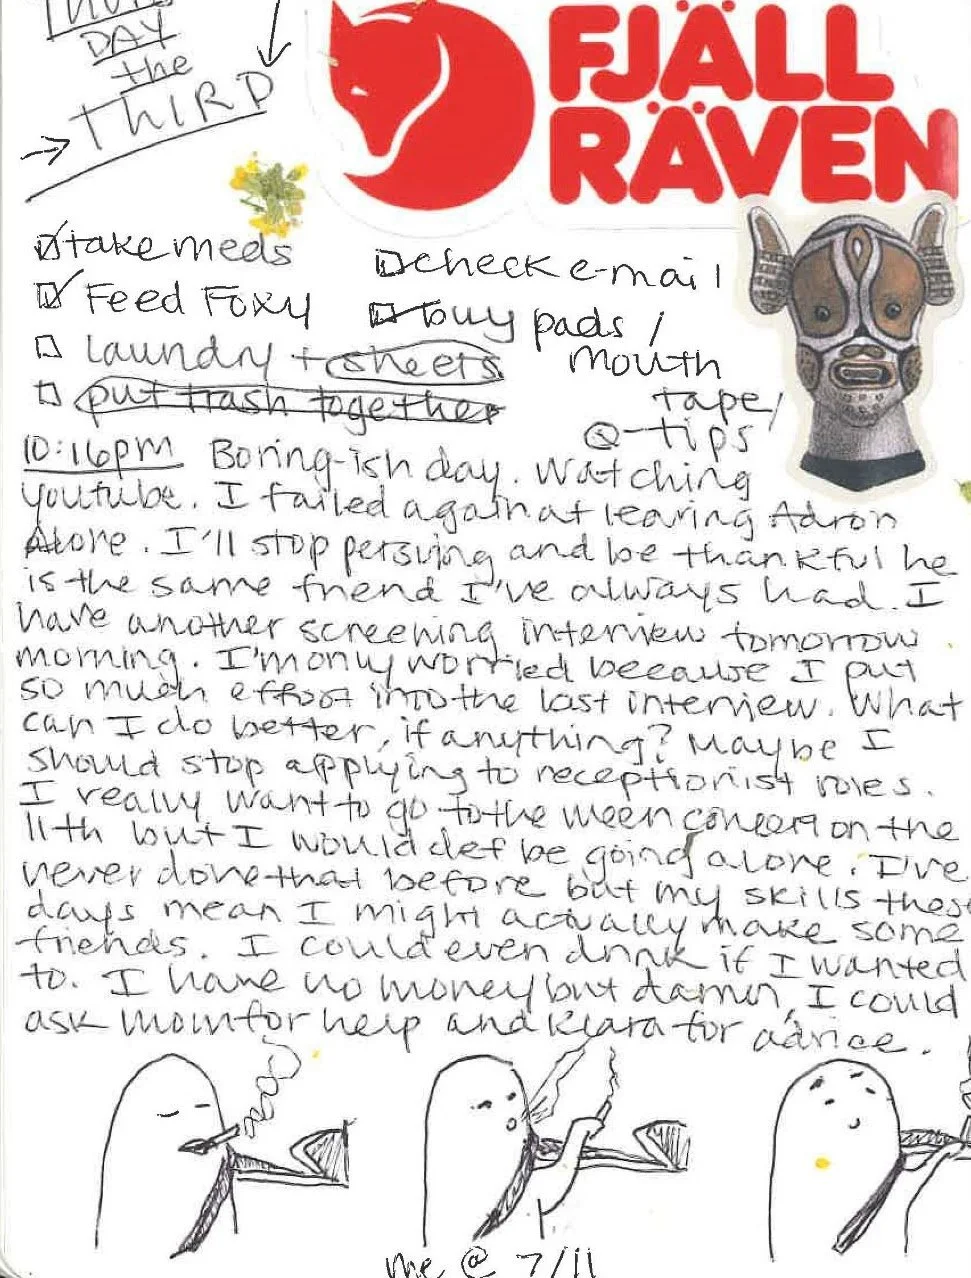 DAY
the
THIRD
FJÄLL
RÄVEN
take meds
Feed Foxy
Laundry + sheets
put trash together
check e-mail
buy pads /
mouth
tape /
Q-tips
10:16pm Boring-ish day. Watching
youtube. I failed again at leaving Adron
Alone. I'll stop persuing and be thankful he
is the same friend I've always had. I
have another screening interview tomorrow
morning. I'm only worried because I put
so much effort into the last interview. What
can I do better, if anything? Maybe I
should stop applying to receptionist roles.
I really want to go to the ween concert on the
11th but I would def be going alone. I've
never done that before but my skills these
days mean I might actually make some
friends. I could even drink if I wanted
to. I have no money but damn, I could
ask mom for help and Klara for advice.
me @ 7/11